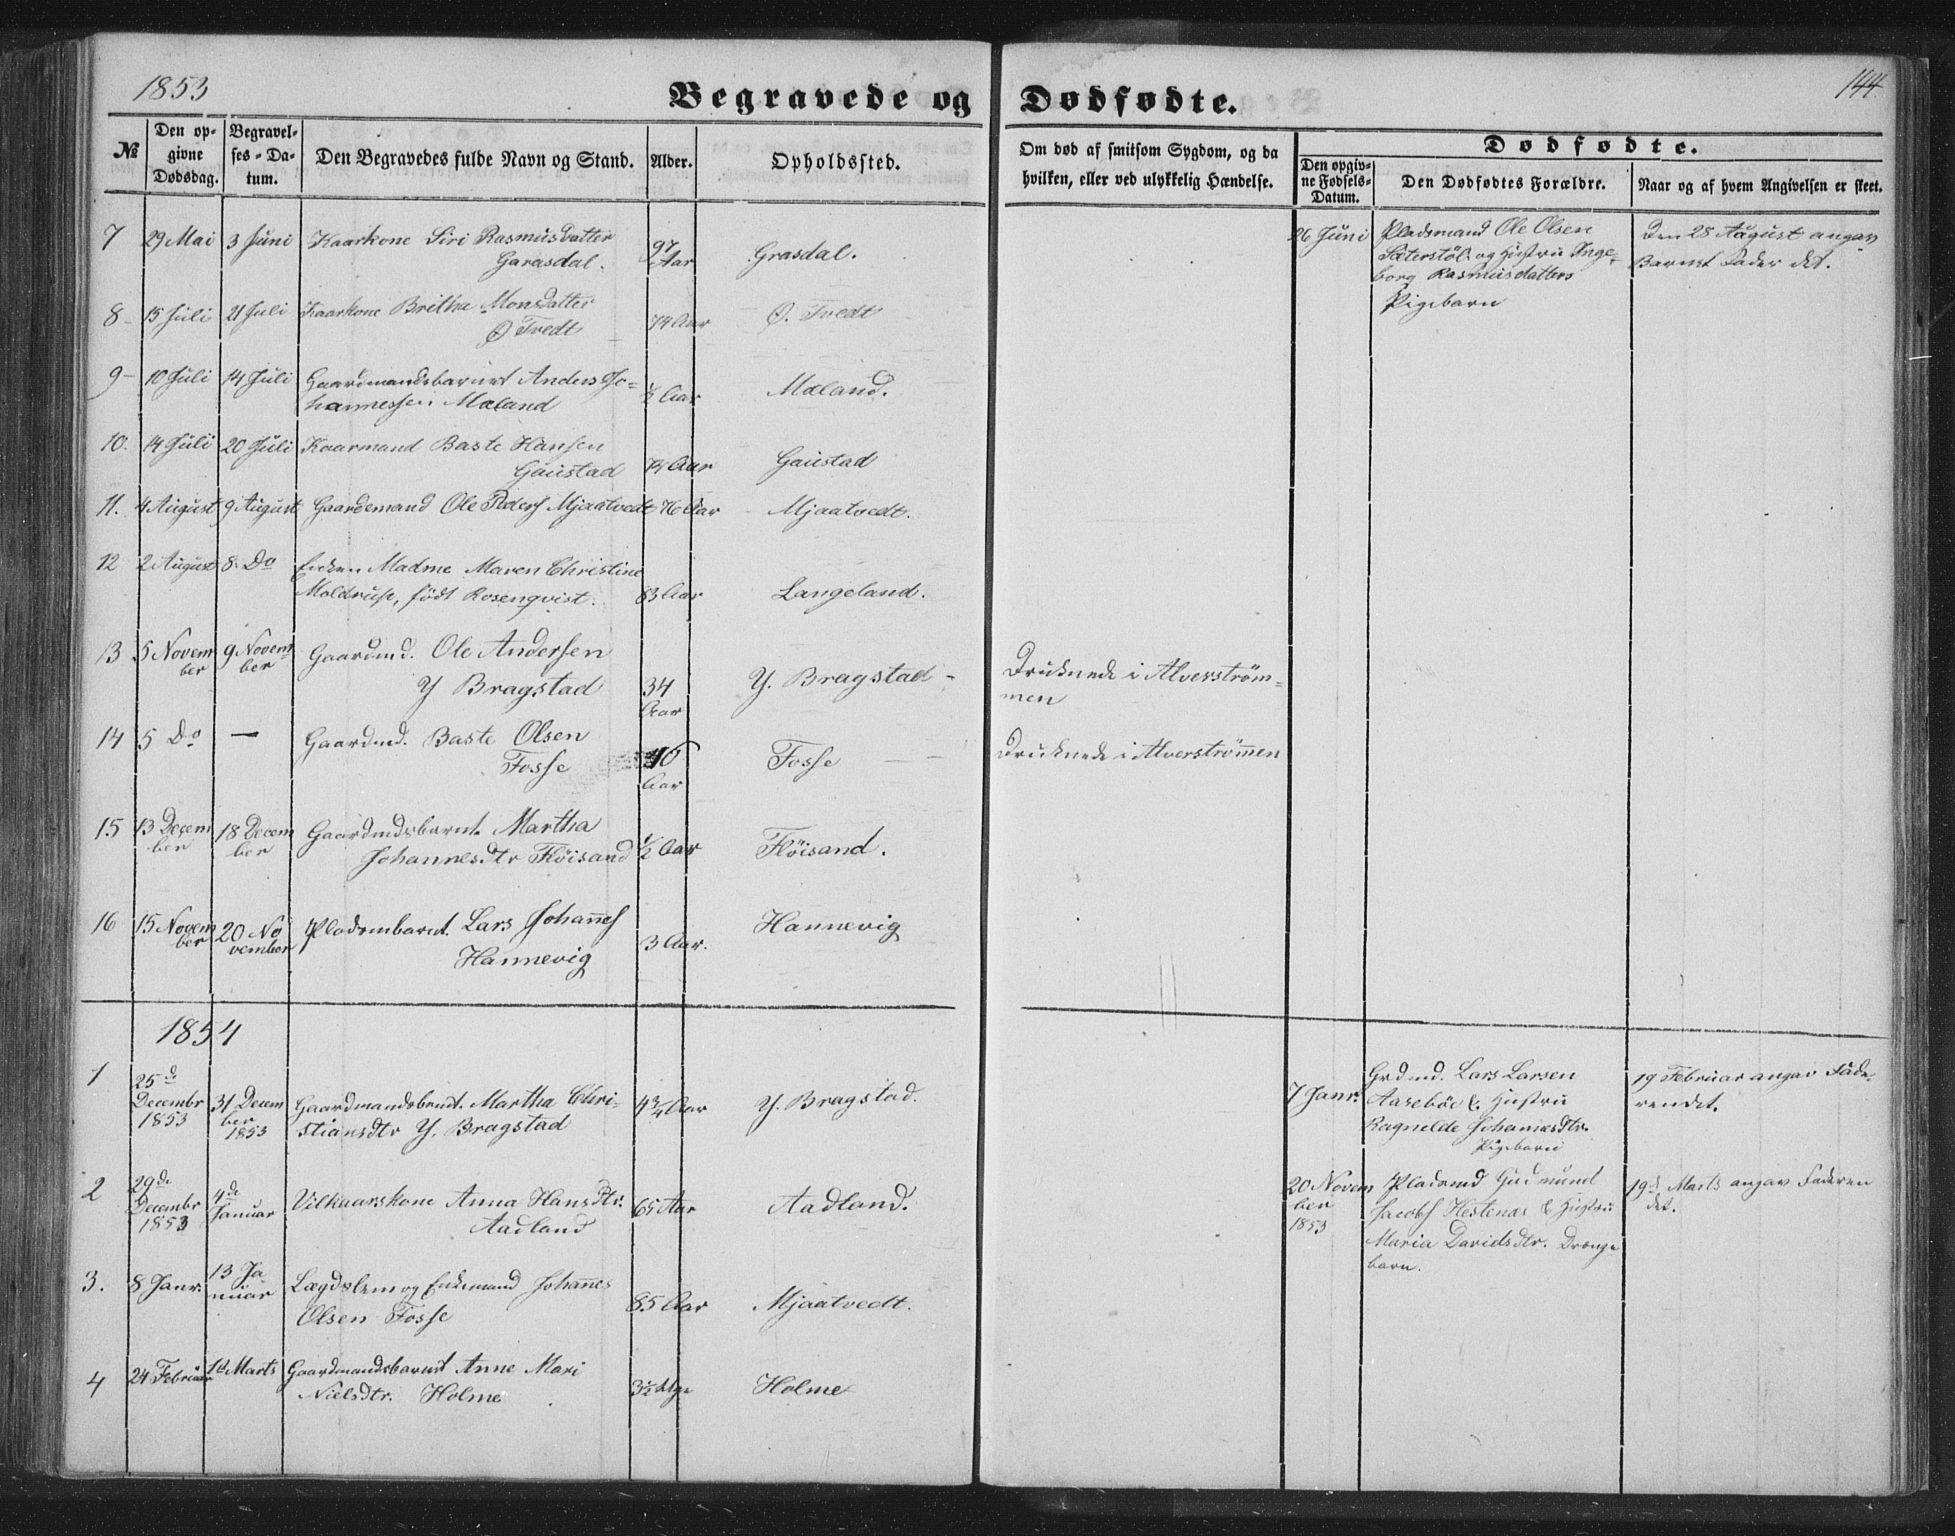 1853
Begravede og Dødfødte.
144.
№
Den op-
givne
Dødsdag.
Begravel-
ses-Da-
tum.
Den Begravedes fulde Navn og Stand.
Alder.
Opholdssted.
Om død af smitsom Sygdom, og da
hvilken, eller ved ulykkelig Hændelse.
Dødfødte.
Den opgiv-
ne Fødsels-
Datum.
Den Dødfødtes Forældre.
Naar og af hvem Angivelsen er skeet.
7 29 Mai 3 Juni Kaarkone Siri Rasmusdatter
Garasdal. 97 Aar Grasdal.
26 Juni Pladsmand Ole Olsen
Sæterstöl og Hustru Inge-
borg Rasmusdatters
Pigebarn
Den 28 August angav
Barnets Fader det.
8 15 Juli 21 Juli Kaarkone Britha Monsdatter
Ø Tvedt 74 Aar Ø. Tvedt
9 10 Juli 14 Juli Gaardmandsbarnet Anders Jo-
hannessen Mæland ½ Aar Mæland.
10. 14 Juli 20 Juli Kaarmand Baste Hansen
Gaustad Aar Gaustad
11. 4 August 9 August Gaardemand Ole Peders Mjaatvedt 76 Aar Mjaatvedt.
12 2 August 8. Do Enken Madme Maren Christine
født Rosenqvist. 83 Aar Langeland.
13 5 Novem
ber 9 Novem-
ber Gaardmd. Ole Andersen
Y Bragstad 34
Aar Y. Bragstad - Druknede i Alverström-
men
14 5 Do — Gaardmd. Baste Olsen
Fosse 40
Aar Fosse — — Druknede i Alverströmen
15 13 Decem
ber 18 Decem
ber Gaardmdsbarnt. Martha
Johannesdtr Flöisand ½ Aar Flöisand.
16 15 Novem
ber 20 No
vember Pladsmbarnt. Lars Johannes
Hannevig 3 Aar. Hannevig
1854
1 25de
Decembr
1853 31 Decem
ber
1853 Gaardmandsbrnt. Martha Chri-
stiansdtr Y. Bragstad 4¾ Aar Y. Bragstad.
7 Janr. Grdmd. Lars Larsen
Aaseböe & Hustru
Ragnelde Johannesdtr.
Pigebarn
19 Februar angav Fade-
ren det.
2 29de
Decembr
1853 4de
Januar Vilkaarskone Anna Hansdtr.
Aadland 65 Aar Aadland.
20 Novem
ber
1853 Pladsmd Gudmund
Jacobs Hestenæs & Hustru
Maria Davidsdtr. Drænge
barn.
19de Marts angav Faderen
det.
3. 8 Janr. 13 Ja
nuar Lægdslem og Enkemand Johannes
Olsen Fosse 85 Aar Mjaatvedt.
4 24 Februar 1st Marts Gaardmandsbarnet Anne Mari
Nielsdtr. Holme 3½ Holme